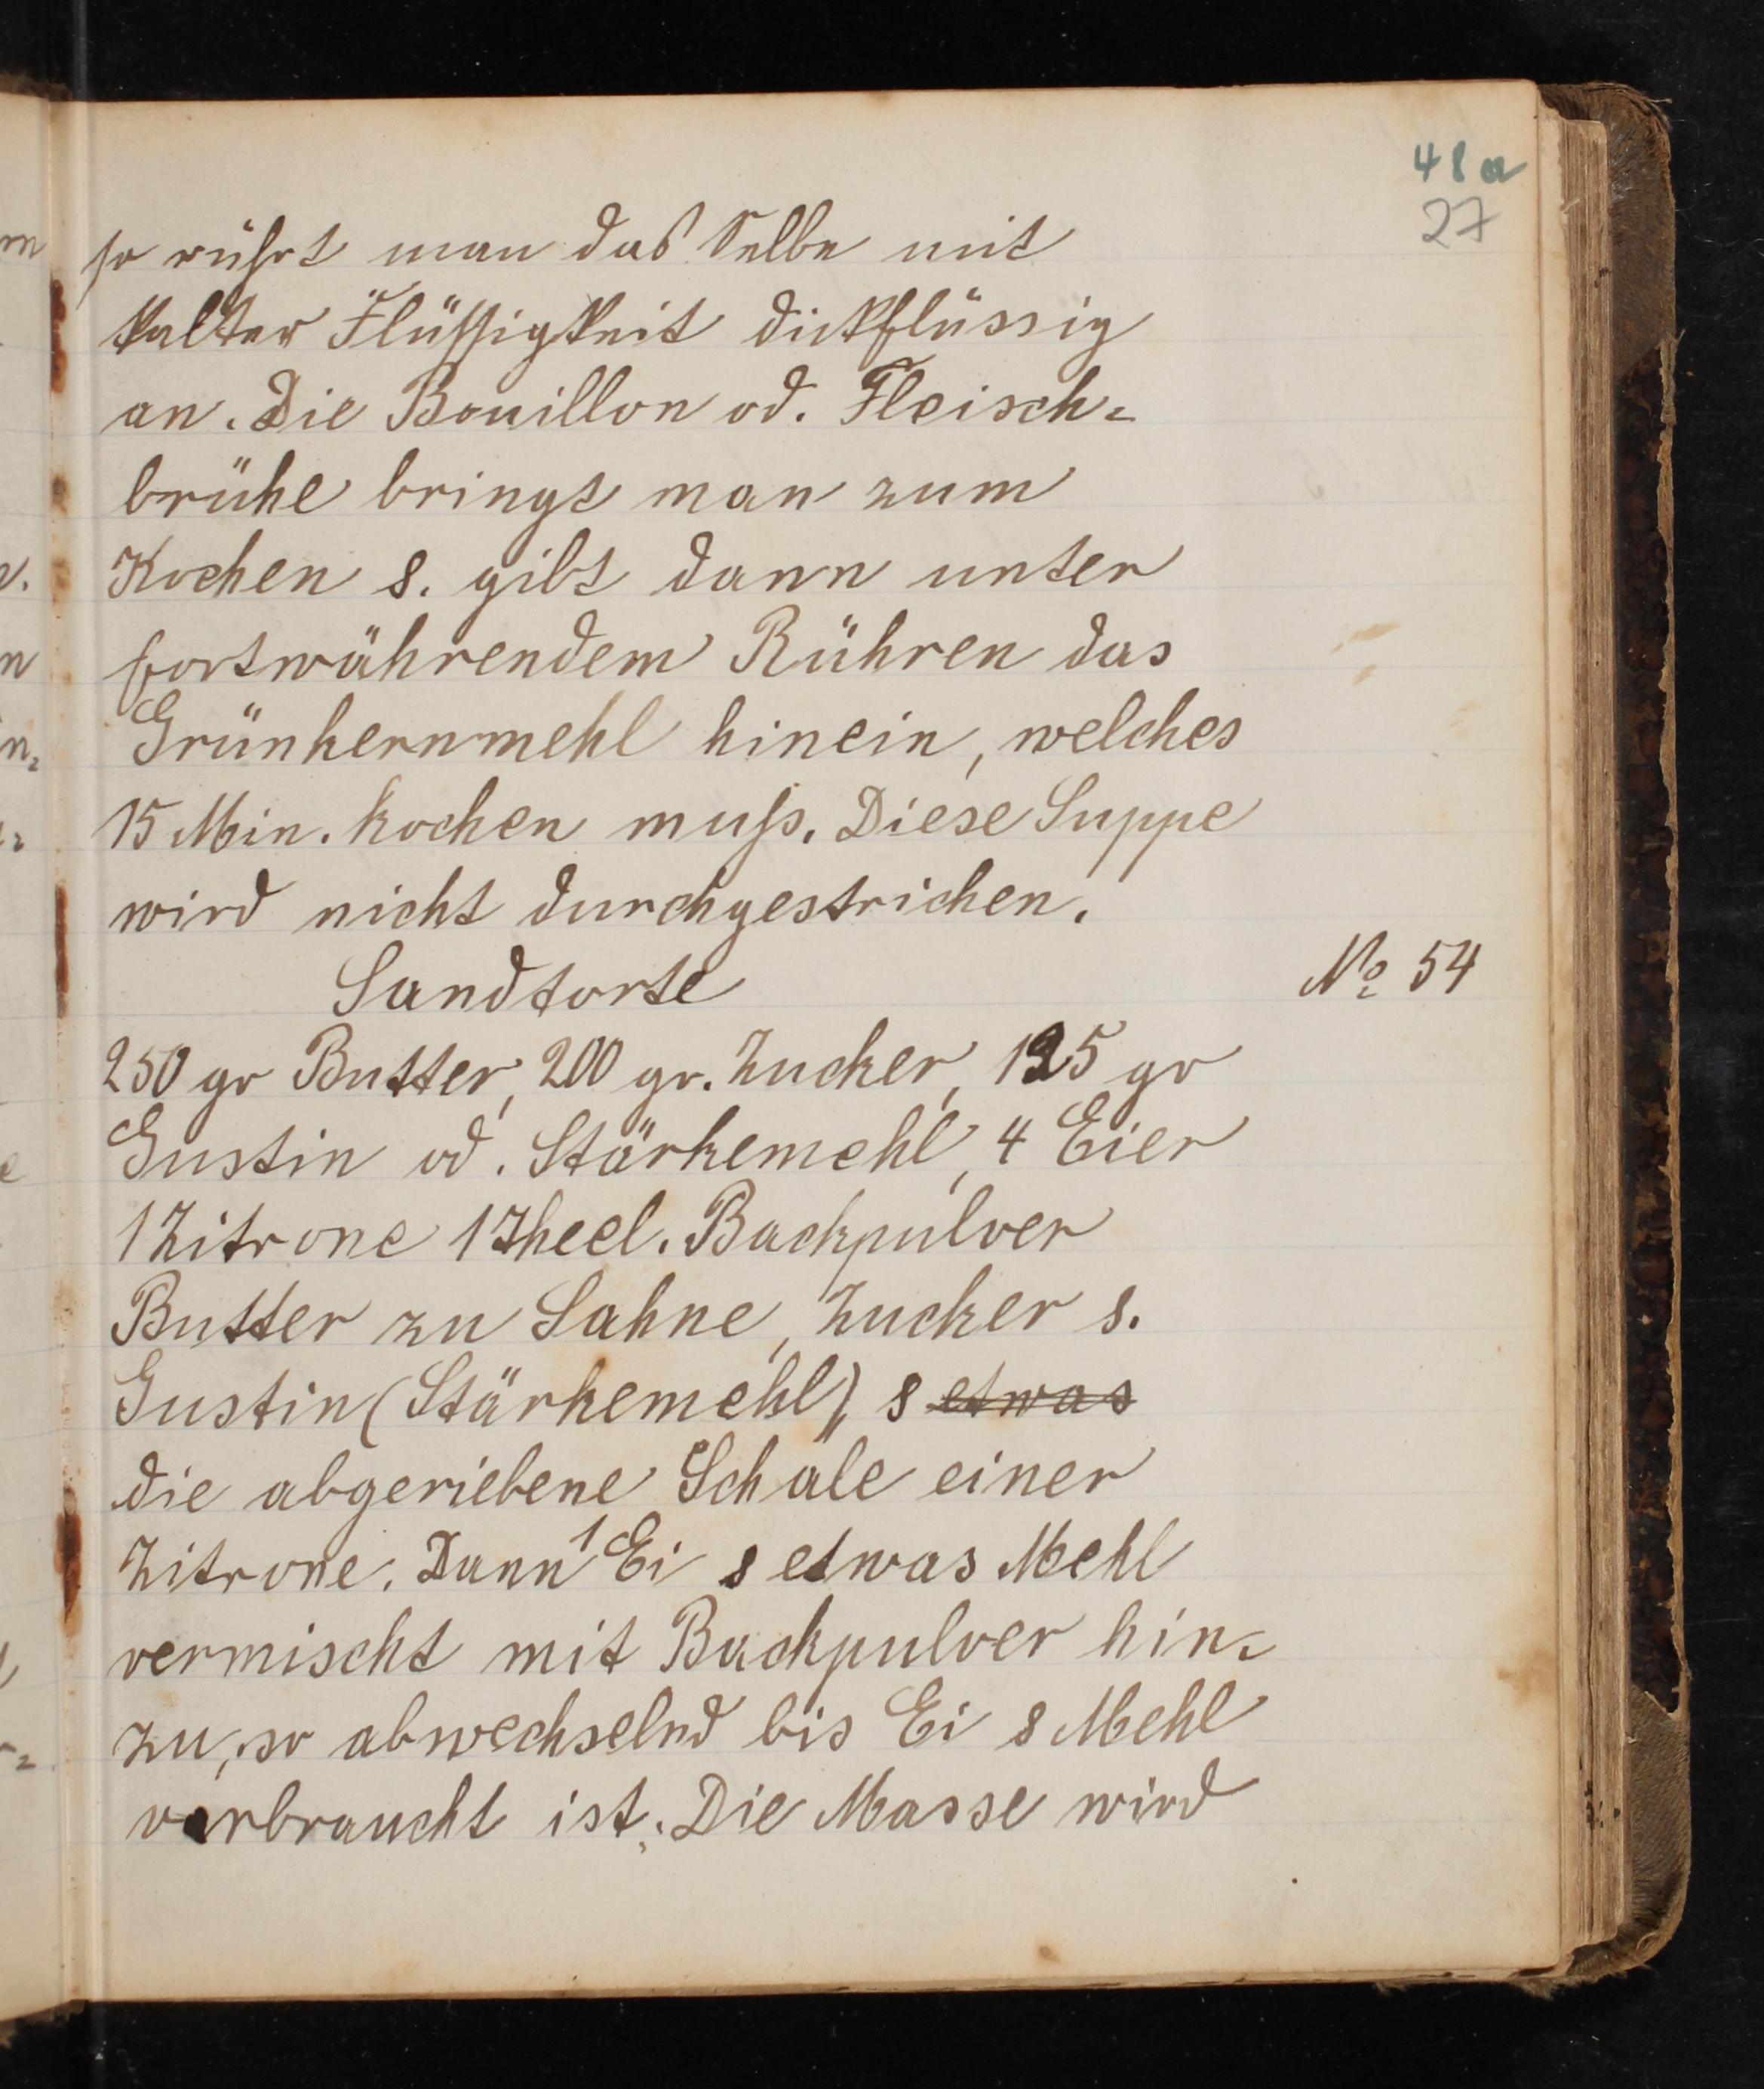 48a
27
so rührt man das selbe mit
kalter Flüssigkeit dickflüssig
an. Die Bouillon od. Fleisch=
brühe bringt man zum
Kochen &. gibt dann unter
fortwährendem Rühren das
Grünkernmehl hinein, welches
15 Min. kochen muss. Diese Suppe
wird nicht durchgestrichen.
Sandtorte
No 54
250 gr Butter, 200 gr. Zucker, 125 gr
Gustin od. Stärkemehl, 4 Eier
1 Zitrone 1 Theel. Backpulver
Butter zu Sahne, Zucker &.
Gustin (Stärkemehl), & etwas
die abgeriebene Schale einer
Zitrone. Dann 1 Ei & etwas Mehl
vermischt mit Backpulver hin=
zu, so abwechselnd bis Ei & Mehl
verbraucht ist. Die Masse wird